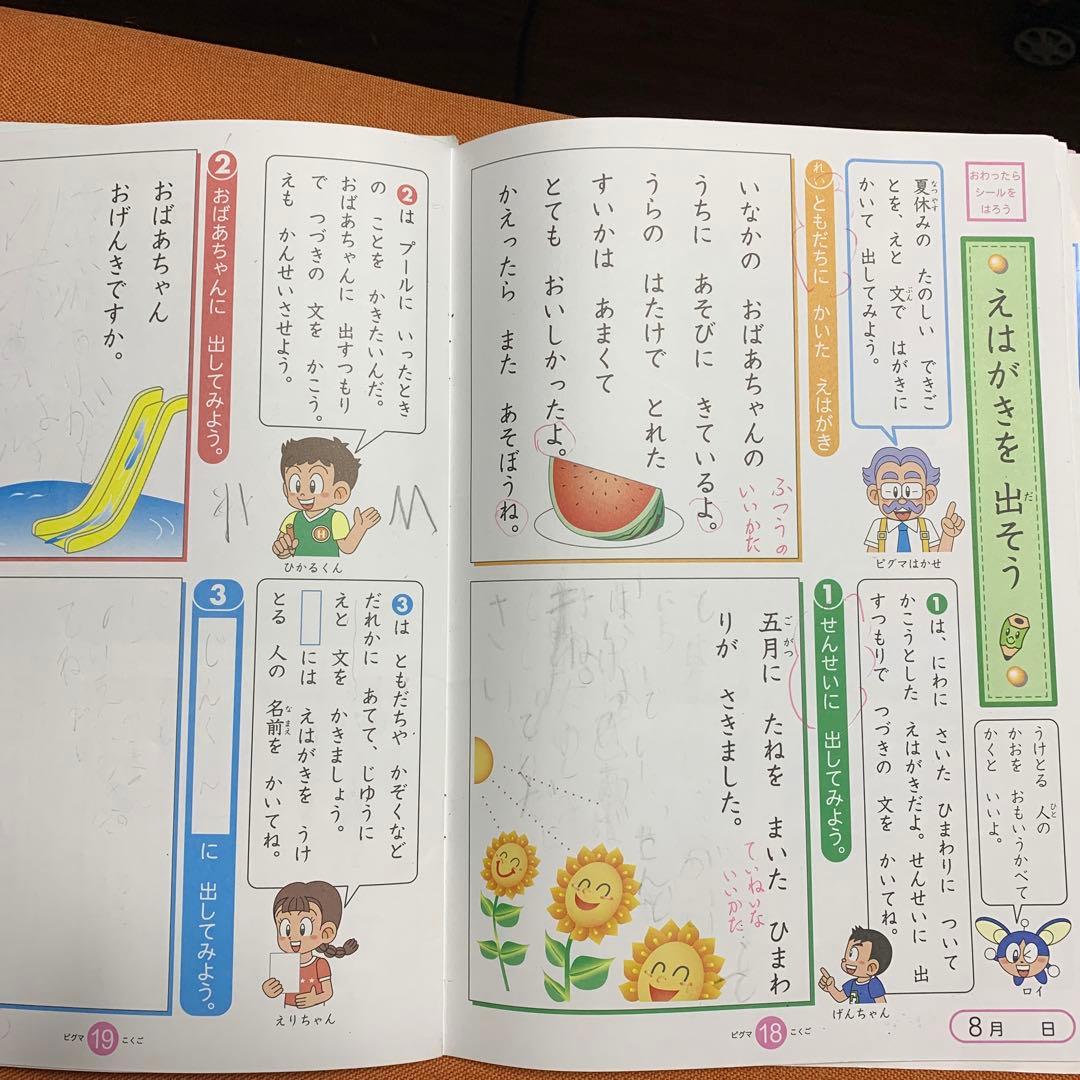 おわったら
シールを
はろう
えはがきを 出そう
だ
夏休みの たのしい できご
なつやす
とを、えと 文で はがきに
ぶん
かいて 出してみよう。
ピグマはかせ
れい ともだちに かいた えはがき
いなかの おばあちゃんの
うちに あそびに きているよ。
うらの はたけで とれた
すいかは あまくて
とても おいしかったよ。
かえったら また あそぼうね。
ふつうの
いいかた
うけとる 人の
ひと
かおを おもいうかべて
かくと いいよ。
ロイ
1は、にわに さいた ひまわりに ついて
かこうとした えはがきだよ。せんせいに 出
すつもりで つづきの 文を かいてね。
げんちゃん
1 せんせいに 出してみよう。
五月に たねを まいた ひまわ
ごがつ
りが さきました。
ていねいな
いいかた
8月 日
ピグマ 18 こくご
2は プールに いったとき
の ことを かきたいんだ。
おばあちゃんに 出すつもり
で つづきの 文を かこう。
えも かんせいさせよう。
ひかるくん
2 おばあちゃんに 出してみよう。
おばあちゃん
おげんきですか。
3は ともだちや かぞくなど
だれかに あてて、じゆうに
えと 文を かきましょう。
には えはがきを うけ
とる 人の 名前を かいてね。
なまえ
えりちゃん
3 に 出してみよう。
ピグマ 19 こくご